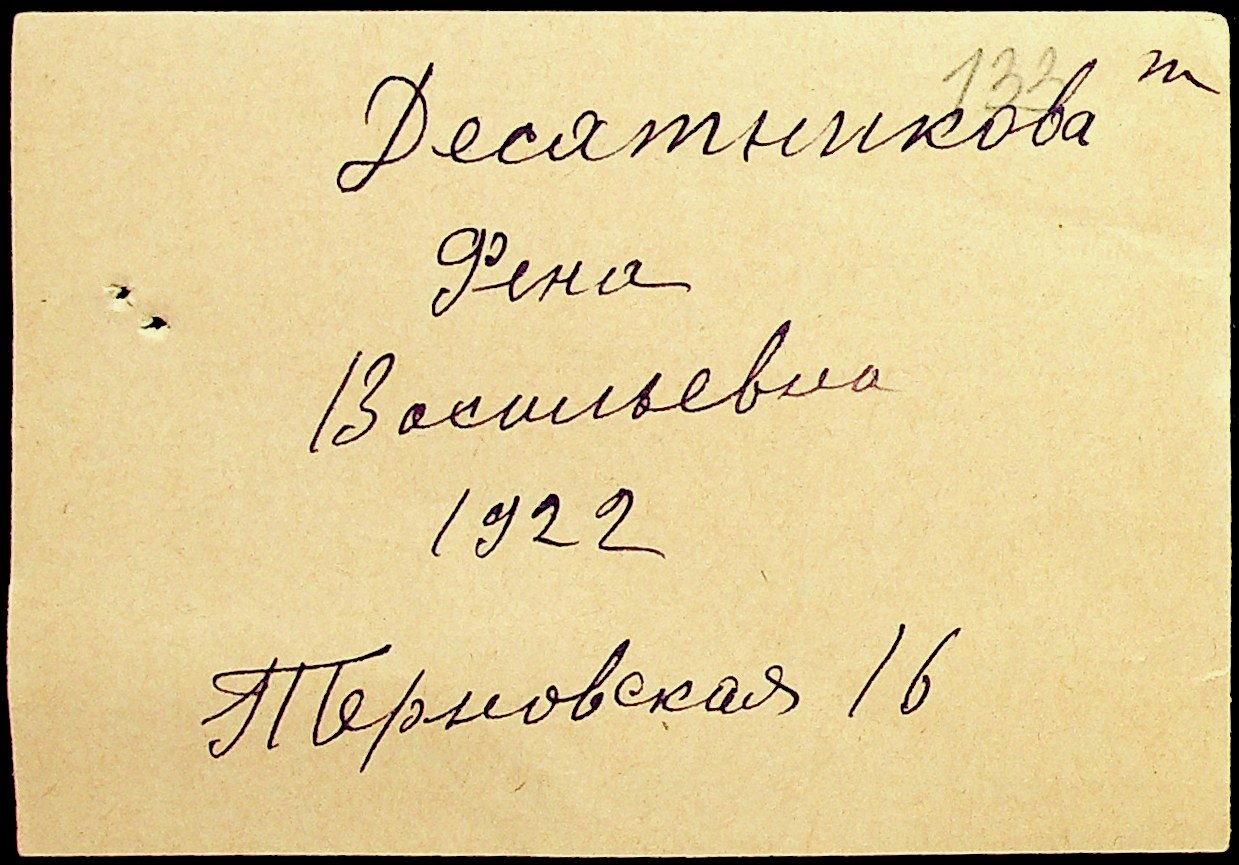 133
Десятникова т
Фена
Васильевна
1922
Терновская 16